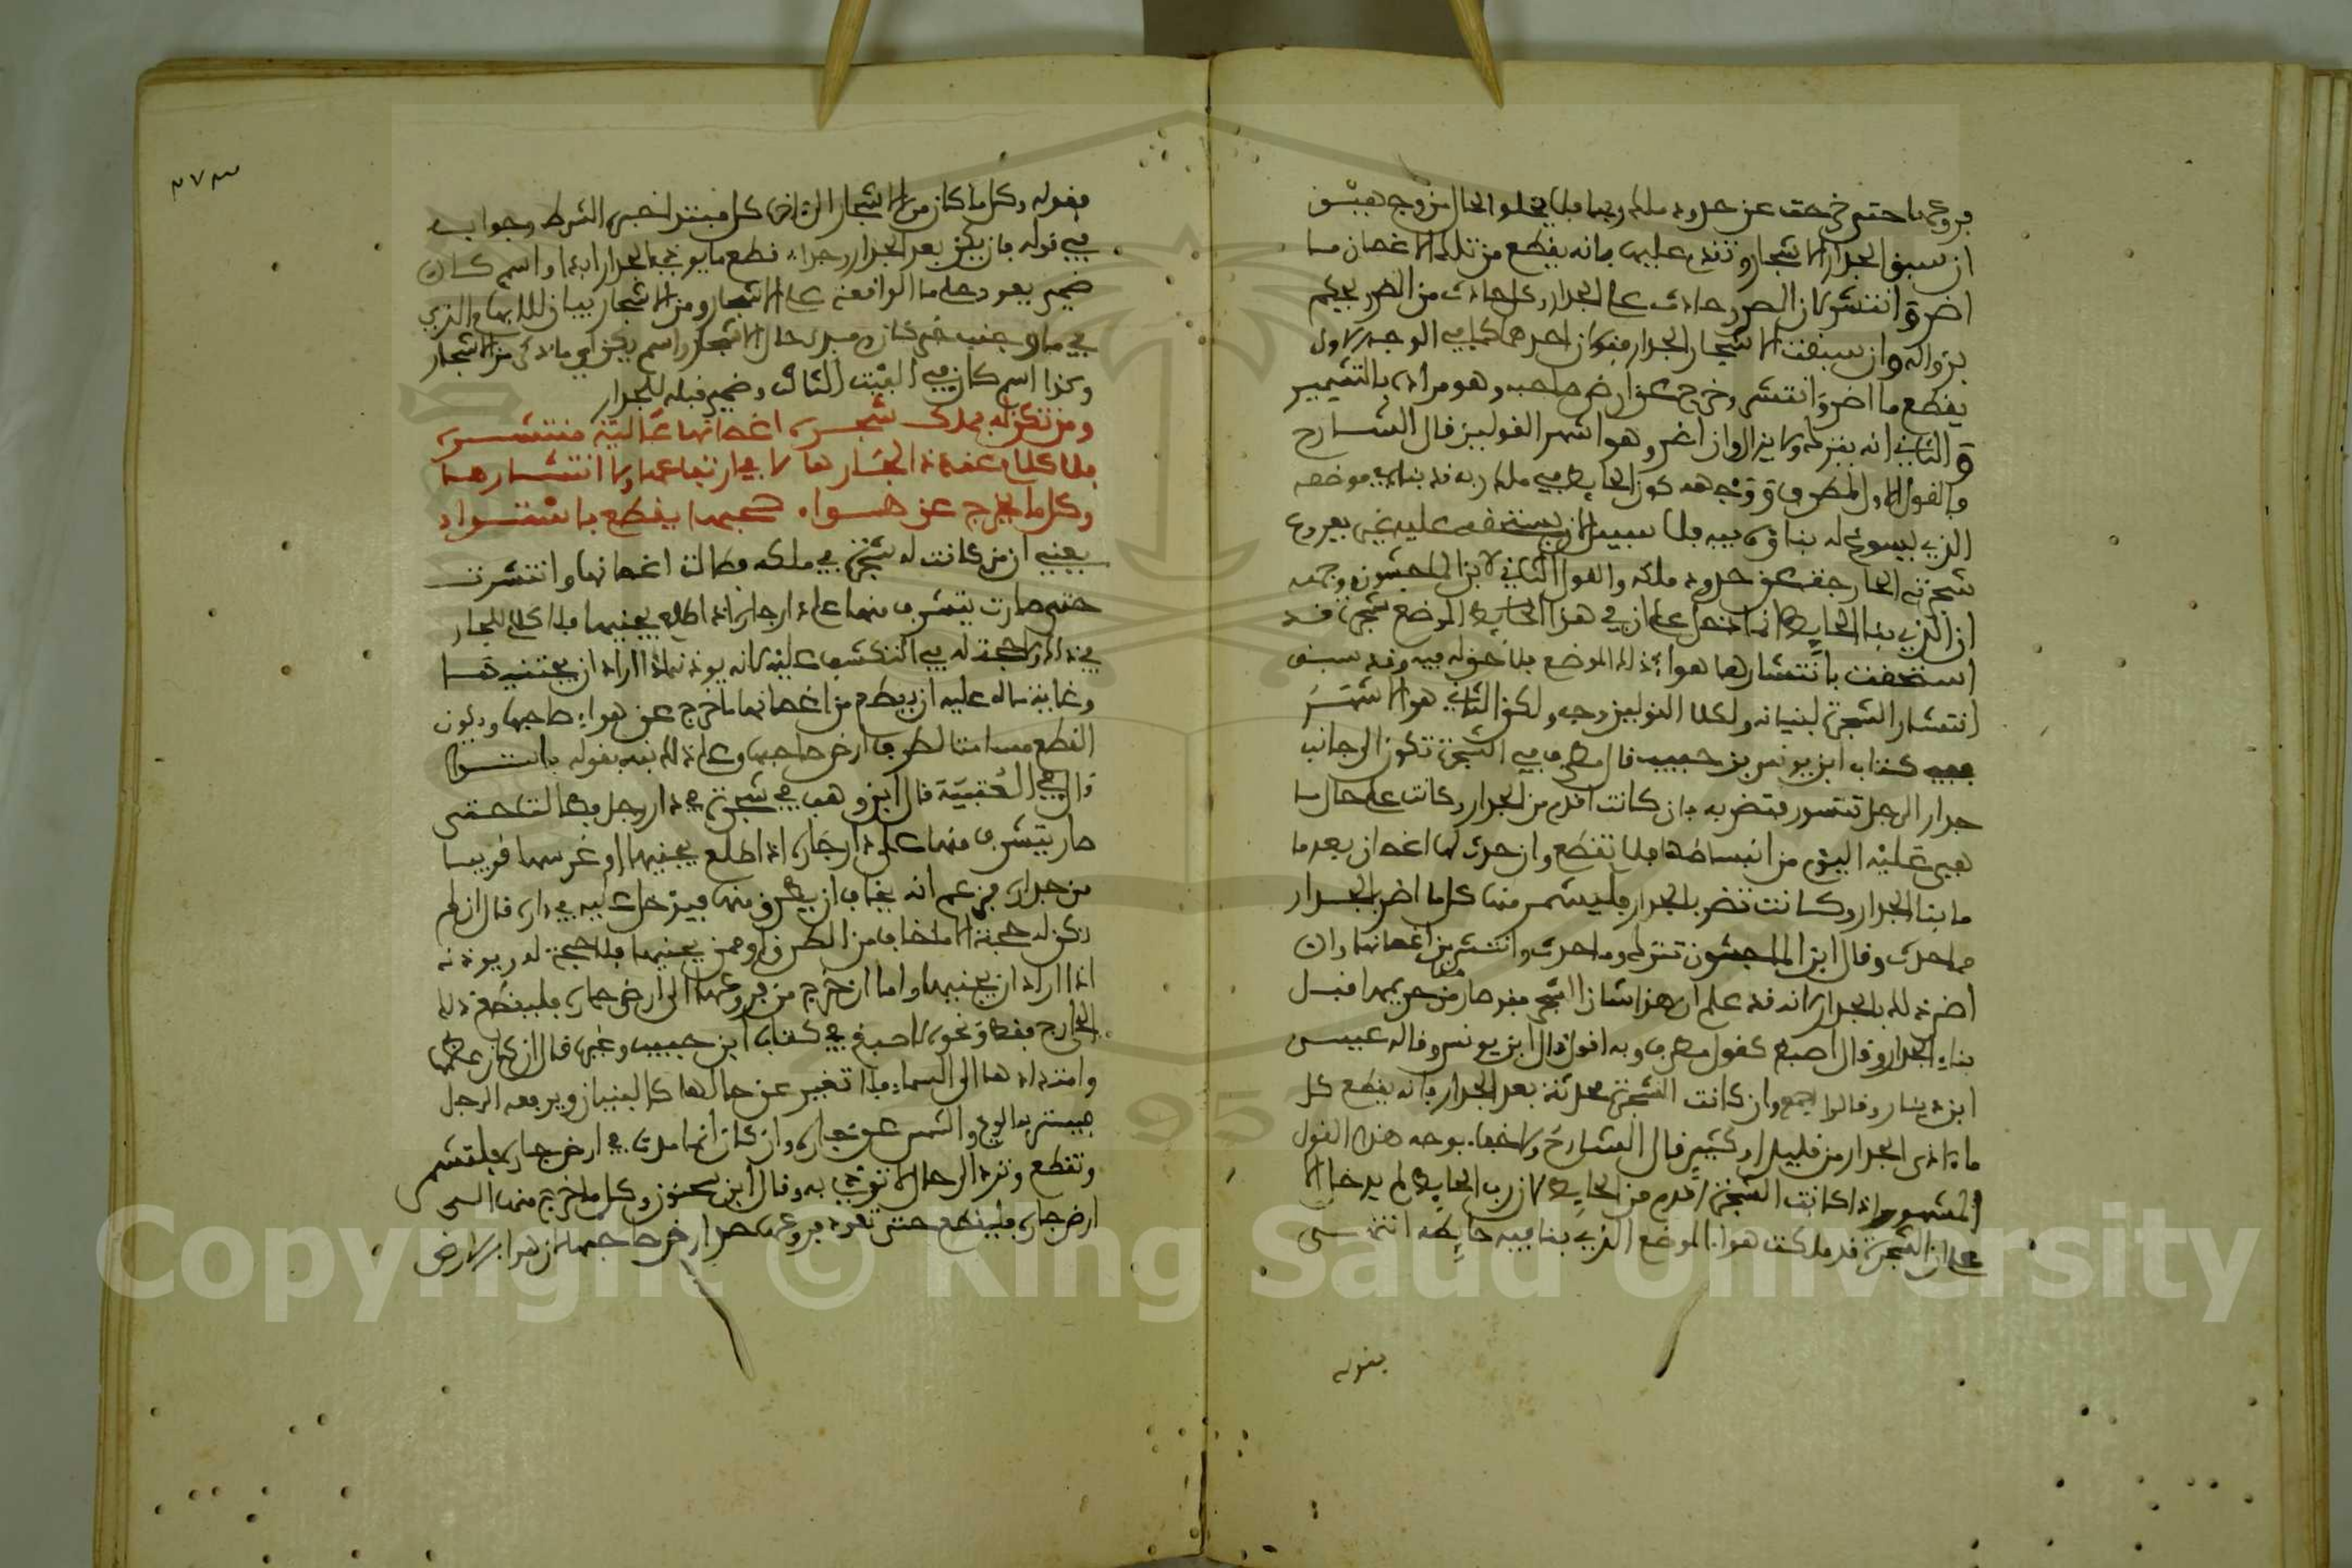 فروعها حتى خرجت عن حدود ملك ربها فلا يخلو الحال من وجهين
ان سبق الجدار الاشجار وتقدم عليها فانه يقطع من تلك الاغصان ما
اضر وانتشر لان الضرر حادث على الجدار وكل حادث من الضرر يحكم
بزواله وان سبقت الاشجار الجدار فقولان احدهما كما في الوجه الاول
يقطع ما اضر وانتشر وخرج عن ارض صاحبه وهو مراده بالتشمير
والثاني انه يترك ولا يزال وان اضر وهو اشهر القولين قال الشارح
والقول الاول لمطرف ووجهه كون الحايط في ملك ربه قد بناه في موضعه
الذي يسوغ له بناؤه فيه فلا سبيل لان يستحق عليه غيره بفروع
شجرته الخارجة عن حدود ملكه والقول الثاني لابن الماجشون وجهه
ان الذي بنا الحايط انما دخل على ان في هذا الحايط الموضع شجرة قد
استحقت بانتشارها هوا ذلك الموضع فلا حق له فيه وقد سبق
انتشار الشجرة لبنيانه ولكلا القولين وجه ولكن الثاني هو الاشهر
ففي كتاب ابن يونس بن حبيب قال مطرف في الشجرة تكون الى جانب
جدار الرجل فتضر به فان كانت اقدم من الجدار وكانت على حال ما
هي عليه اليوم من انبساطها فلا تقطع وان حدث لها اغصان بعد ما
ما بنا الجدار وكانت تضر بالجدار فليشمر منها كل ما اضر بالجدار
مما حدث وقال ابن الماجشون تترك وما حدث وانتشر من اغصانها وان
اضر ذلك بالجدار لانه قد علم ان هذا شان الشجر فقد صار من حريمها قبل
بناء الجدار وقال اصبغ كقول مطرف وبه اقول قال ابن يونس وقاله عيسى
ابن دينار وقالوا اجمع وان كانت الشجرة محدثة بعد الجدار فانه يقطع كل
ما اذى الجدار من قليل او كثير قال الشارح ولا خفاء بوجه هذا القول
المشهور اذا كانت الشجرة اقدم من الحايط لان رب الحايط لم يدخل الا
على ان الشجرة قد ملكت هوا الموضع الذي بنا فيه حايطه انتهى
بقوله
٢٧٣
فقوله وكل ما كان من الاشجار الى اخره كل مبتدا خبره الشرط وجوابه
في قوله فان يكن بعد الجدار وجدا قطع ما يوذي الجدار ابدا واسم كان
ضمير يعود على ما الواقعة على الاشجار ومن الاشجار بيان للابهام الذي
في ما وجنب خبر كان ومبدى حال الاشجار واسم يكن اي ما ذكر من الاشجار
وكذا اسم كان في البيت الثالث وضمير قبله للجدار
ومن تكن له بملك شجره اغصانها عالية منتشره
فلا كلام عند ذا لجارها لا في ارتفاعها ولا انتشارها
وكل ما يخرج عن هواء صاحبها يقطع باستواء
يعني ان من كانت له شجرة في ملكه فطالت اغصانها وانتشرت
حتى صارت يتشرف منها على دار جاره اذا اطلع يجنيها فلا كلام للجار
في ذلك ولا حجة له في التكشف عليه لانه يوذنه اذا اراد ان يجتنيها
وغاية ماله عليه ان يقطع من اغصانها ما خرج عن هواء صاحبها ويكون
القطع مسامتا لطرف ارض صاحبها وعلى ذلك نبه بقوله باستواء
قال في العتبية قال ابن وهب في شجرة في دار رجل فطالت حتى
صار يتشرف منها على دار جاره اذا اطلع يجنيها او غرسها قريبا
من جداره فزعم انه يخاف ان يطرق منها فيدخل عليه في داره قال ان لم
يكن له حجة الا ما خاف من الطرق او ممن يجنيها فلا حجة له ويوذنه
اذا اراد ان يجنيها واما ان خرج من فروعها الى ارض جاره فليقطع ذلك
الخارج فقط ونحوه لاصبغ في كتاب ابن حبيب وغيره قال ان كان عظمها
وامتدادها الى السماء فلا تغير عن حالها كالبنيان ويرفعه الرجل
فيستر به الريح والشمس عن جاره وان كان انما مدت في ارض جاره فلتشمر
وتقطع وترد الى حال لا توذي به وقال ابن سحنون وكل ما خرج منها الى
ارض جاره فليقطع حتى تعود فروعها حد ارض صاحبها لان هواء الارض